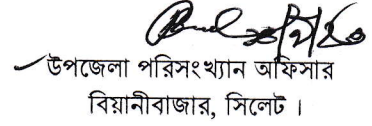 উপজেলা পরিসংখ্যান অফিসার
বিয়ানীবাজার, সিলেট ।